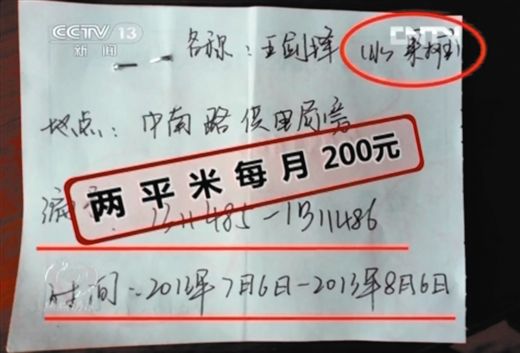 CCTV 13
新闻
名称：王剑锋（水果摊）
地点：中南路供电局旁
两平米每月200元
1311485-1311486
时间：2013年7月6日-2013年8月6日